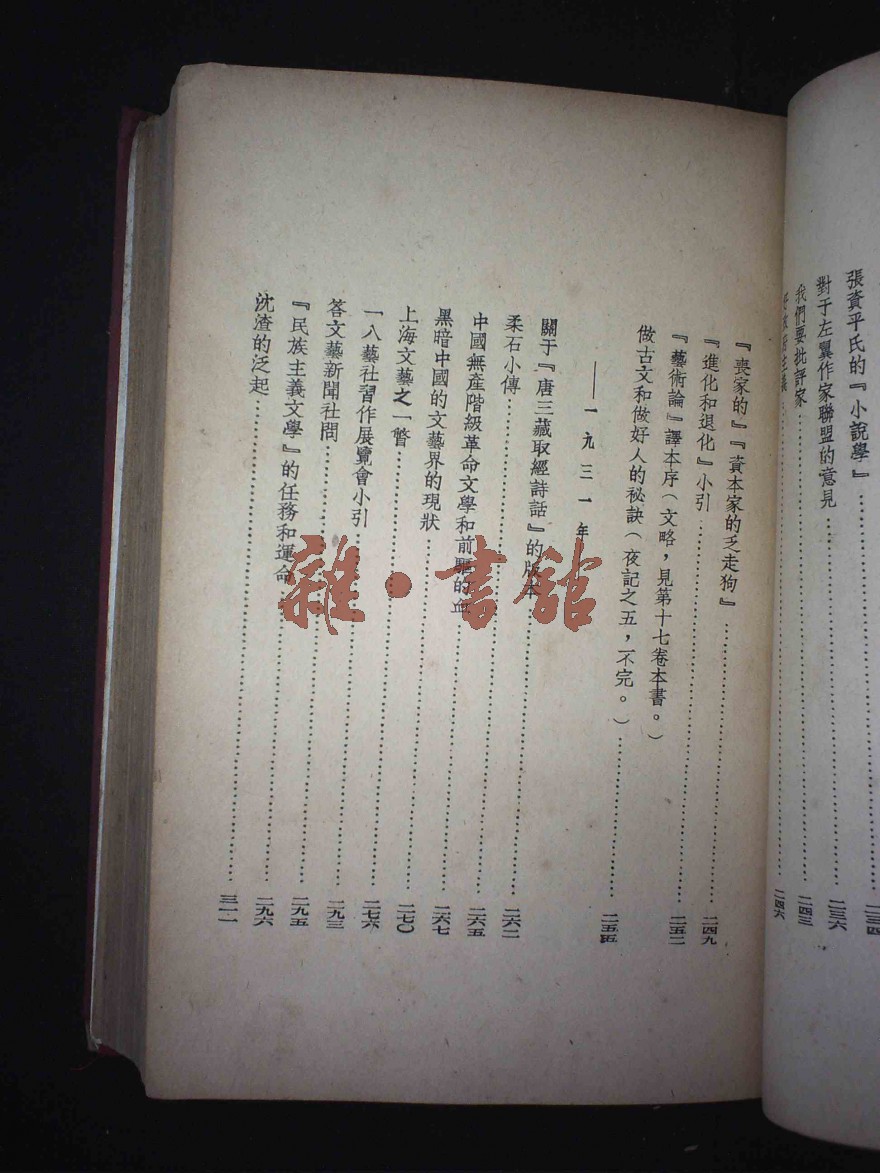 張資平氏的『小說學』……二三四
對于左翼作家聯盟的意見……二三六
我們要批評家……二四三
……二四六
『喪家的』『資本家的乏走狗』……二四九
『進化和退化』小引……二五二
『藝術論』譯本序(文略，見第十七卷本書。)
做古文和做好人的祕訣(夜記之五，不完。)……二五五
——一九三一年
關于『唐三藏取經詩話』的版本……二六二
柔石小傳……二六五
中國無產階級革命文學和前驅的血……二六七
黑暗中國的文藝界的現狀……二七〇
上海文藝之一瞥……二七六
一八藝社習作展覽會小引……二九三
答文藝新聞社問……二九五
『民族主義文學』的任務和運命……二九六
沈渣的泛起……三一一
雜·書館